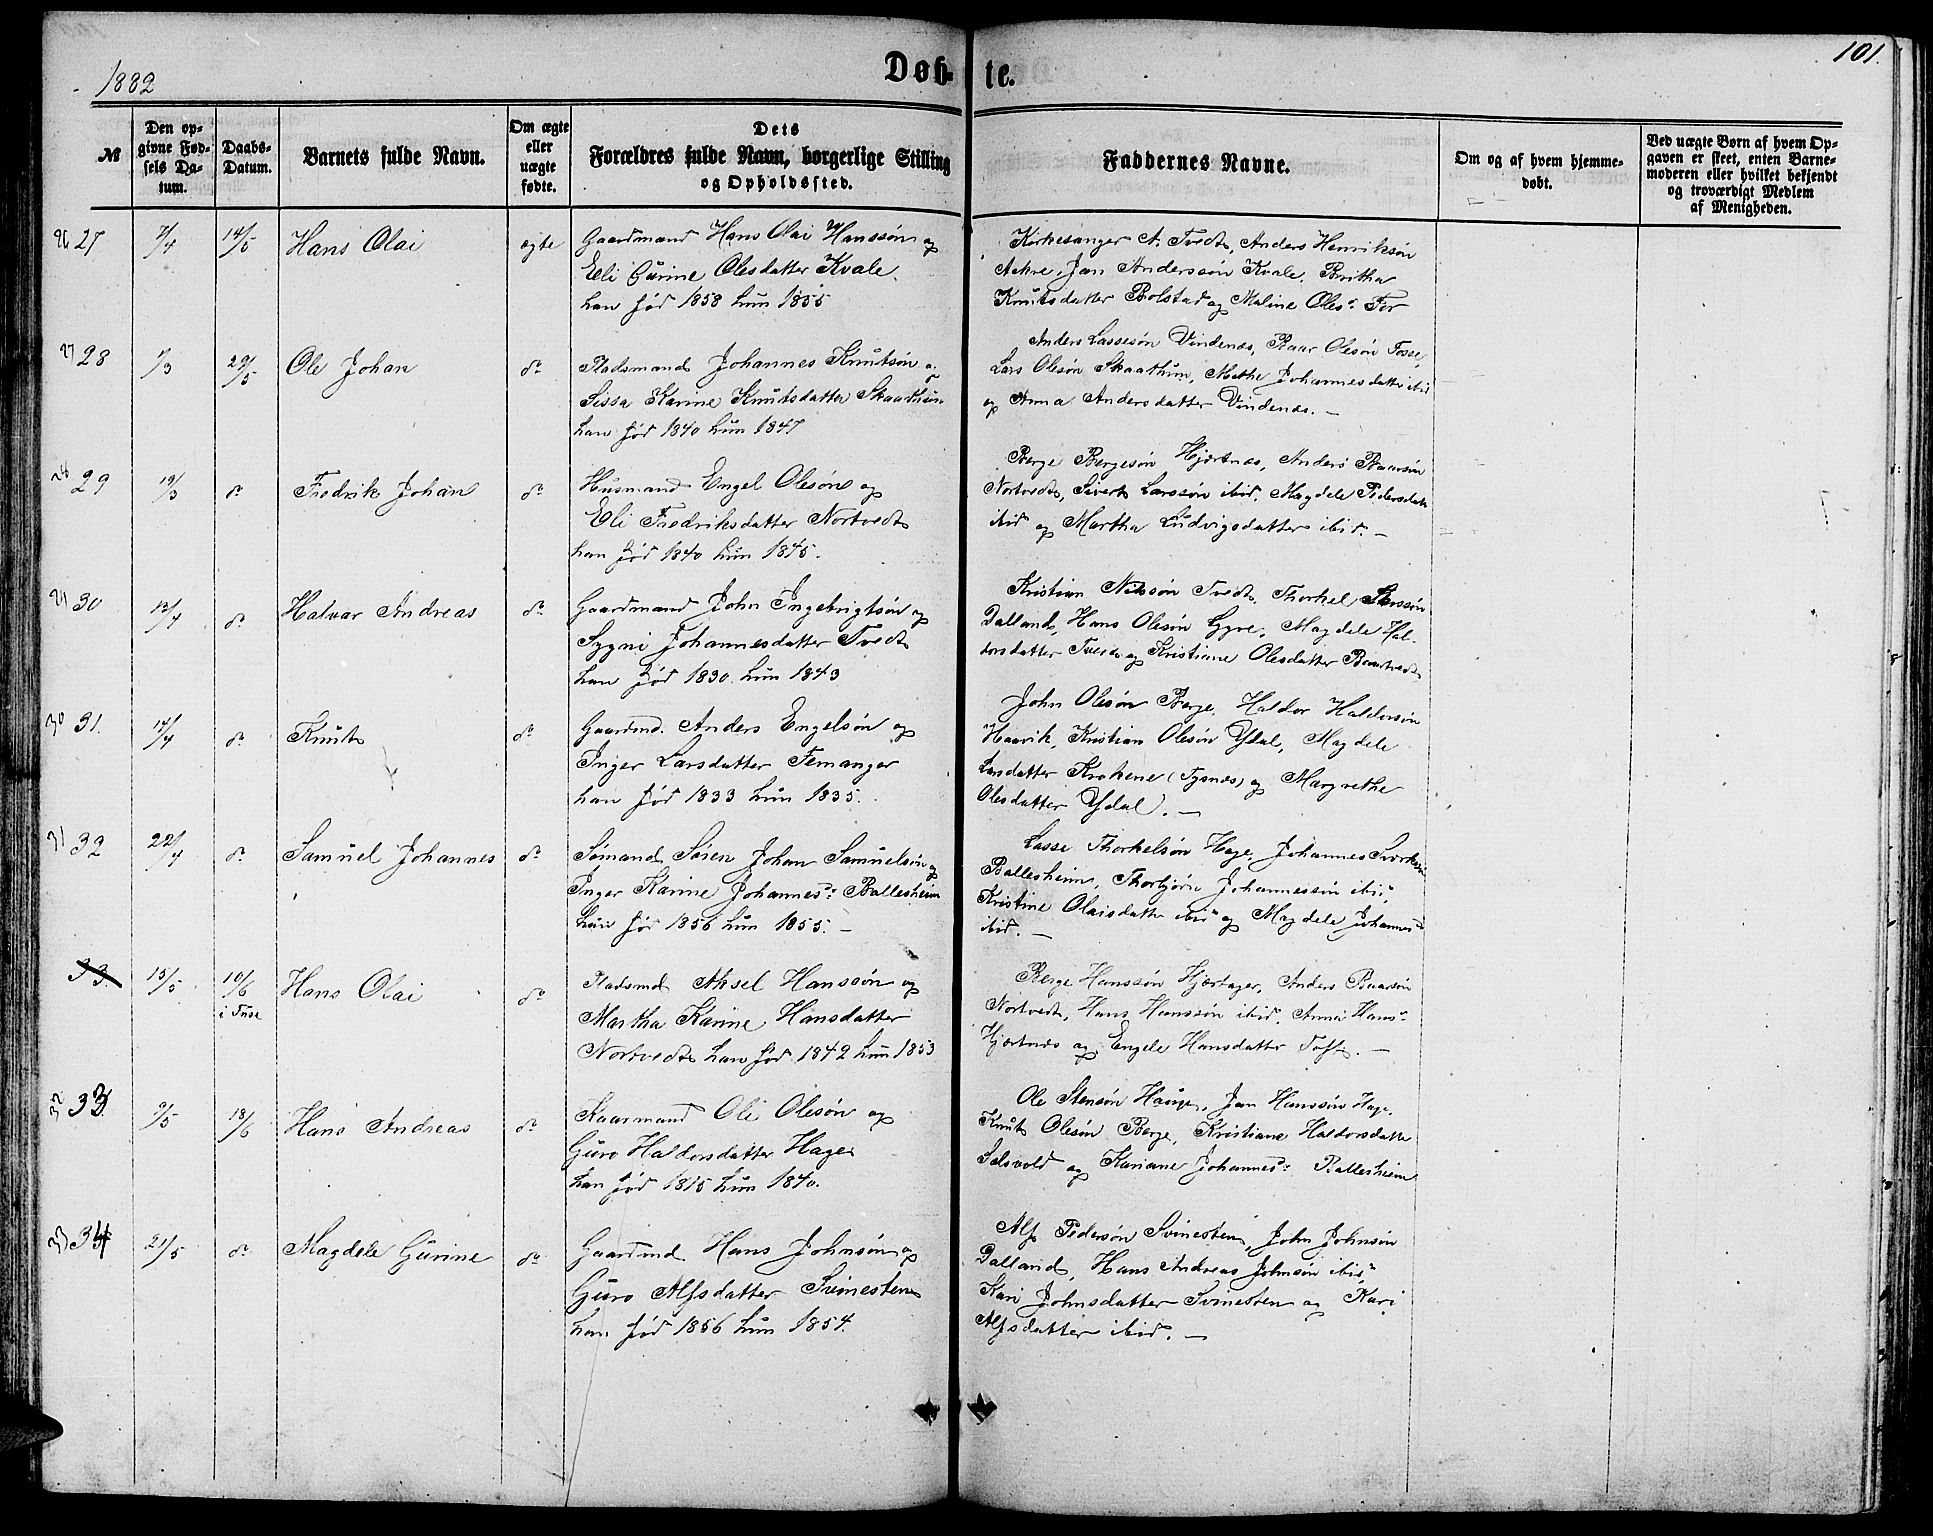 1882
Døb-
te.
101.
№
Den op-
givne Fød-
sels Da-
tum.
Daabs-
Datum.
Barnets fulde Navn.
Om ægte
eller
uægte
fødte.
Dets
Forældres fulde Navn, borgerlige Stilling
og Opholdssted.
Faddernes Navne.
Om og af hvem hjemme-
døbt.
Ved uægte Børn af hvem Op-
gaven er skeet, enten Barne-
moderen eller hvilket bekjendt
og troværdigt Medlem
af Menigheden.
26 27
7/4
14/5
Hans Olai
ægte
Gaardmand Hans Olai Hanssøn og
Eli Gurine Olesdatter Kvale.
han fød 1858 hun 1855
Kirkesanger A. Tvedt, Anders Henriksøn
Aakre, Jan Anderssøn Kvale, Britha
Knutsdatter Bolstad og Maline Olesd.
27 28
7/3
29/5
Ole Johan
do
Pladsmand Johannes Knutsøn og
Sissa Karine Knutsdatter Skaathun
han fød 1840 hun 1847
Anders Lassesøn Vindenæs, Baar Olesøn Fosse,
Lars Olesøn Skaathun, Mathe Johannesdatter ibid
og Anna Andersdatter Vindenæs. —
28 29
19/3
do
Fredrik Johan
do
Husmand Engel Olesøn og
Eli Fredriksdatter Nortvedt
han fød 1840 hun 1845.
Berge Bergesøn Hjørtnæs, Anders Baarsøn
Nortvedt, Sivert Larssøn ibid, Magdele Pedersdatter
ibid og Martha Ludvigsdatter ibid. —
29 30
13/4
do
Halvar Andreas
do
Gaardmand John Ingebrigtsøn og
Sygni Johannesdatter Tvedt
han fød 1830. hun 1843
Kristian Nilssøn Tvedt, Thorkel
Dalland, Hans Olesøn Gyre, Magdele Hal-
dorsdatter Tvedt og Kristiane Olesdatter
30 31.
17/4
do
Knut
do
Gaardmd. Anders Engelsøn og
Inger Larsdatter Femanger
han fød 1833 hun 1835.
John Olesøn Berge, Haldor Haldorsøn
Haavik, Kristian Olesøn Ydal, Magdele
Larsdatter Krokene (Tysnæs) og Margrethe
Olesdatter Ydal). —
31 32
22/4
do
Samuel Johannes
do
Sømand Søren Johan Samuelsøn og
Inger Karine Johannesd: Ballesheim
han fød 1856 hun 1855. —
Lasse Thorkelsøn Hage, Johannes
Ballesheim, Thorbjørn Johannessøn ibid,
Kristine Olaisdatter ibid og Magdele Johannesd
ibid. —
33.
15/5.
10/6
i Fuse
Hans Olai
do
Pladsmd Aksel Hanssøn og
Martha Karine Hansdatter
Nortvedt han fød 1842 hun 1853
Berge Hanssøn Hjørtager, Anders Baarsøn
Nortvedt, Hans Hanssøn ibid, Anna Hansd
Hjørtnæs og Engele Hansdatter —
32 33.
9/5
18/6
Hans Andreas
do
Kaarmand Ole Olesøn og
Guro Haldorsdatter Hage
han fød 1815 hun 1840.
Ole Stensøn Hauge, Jan Hanssøn Hage,
Knut Olesøn Berge, Kristiane Haldorsdatter
og Kariane Johannesd: Ballesheim
33 34
21/5
do
Magdele Gurine
do
Gaardmd Hans Johnsøn og
Guro Alfsdatter Svinesten
han fød 1856 hun 1854.
Alf Pedersøn Svinesten, John Johnsøn
Dalland, Hans Andreas Johnsøn ibid,
Kari Johnsdatter Svinesten og Kari
Alfsdatter ibid. —